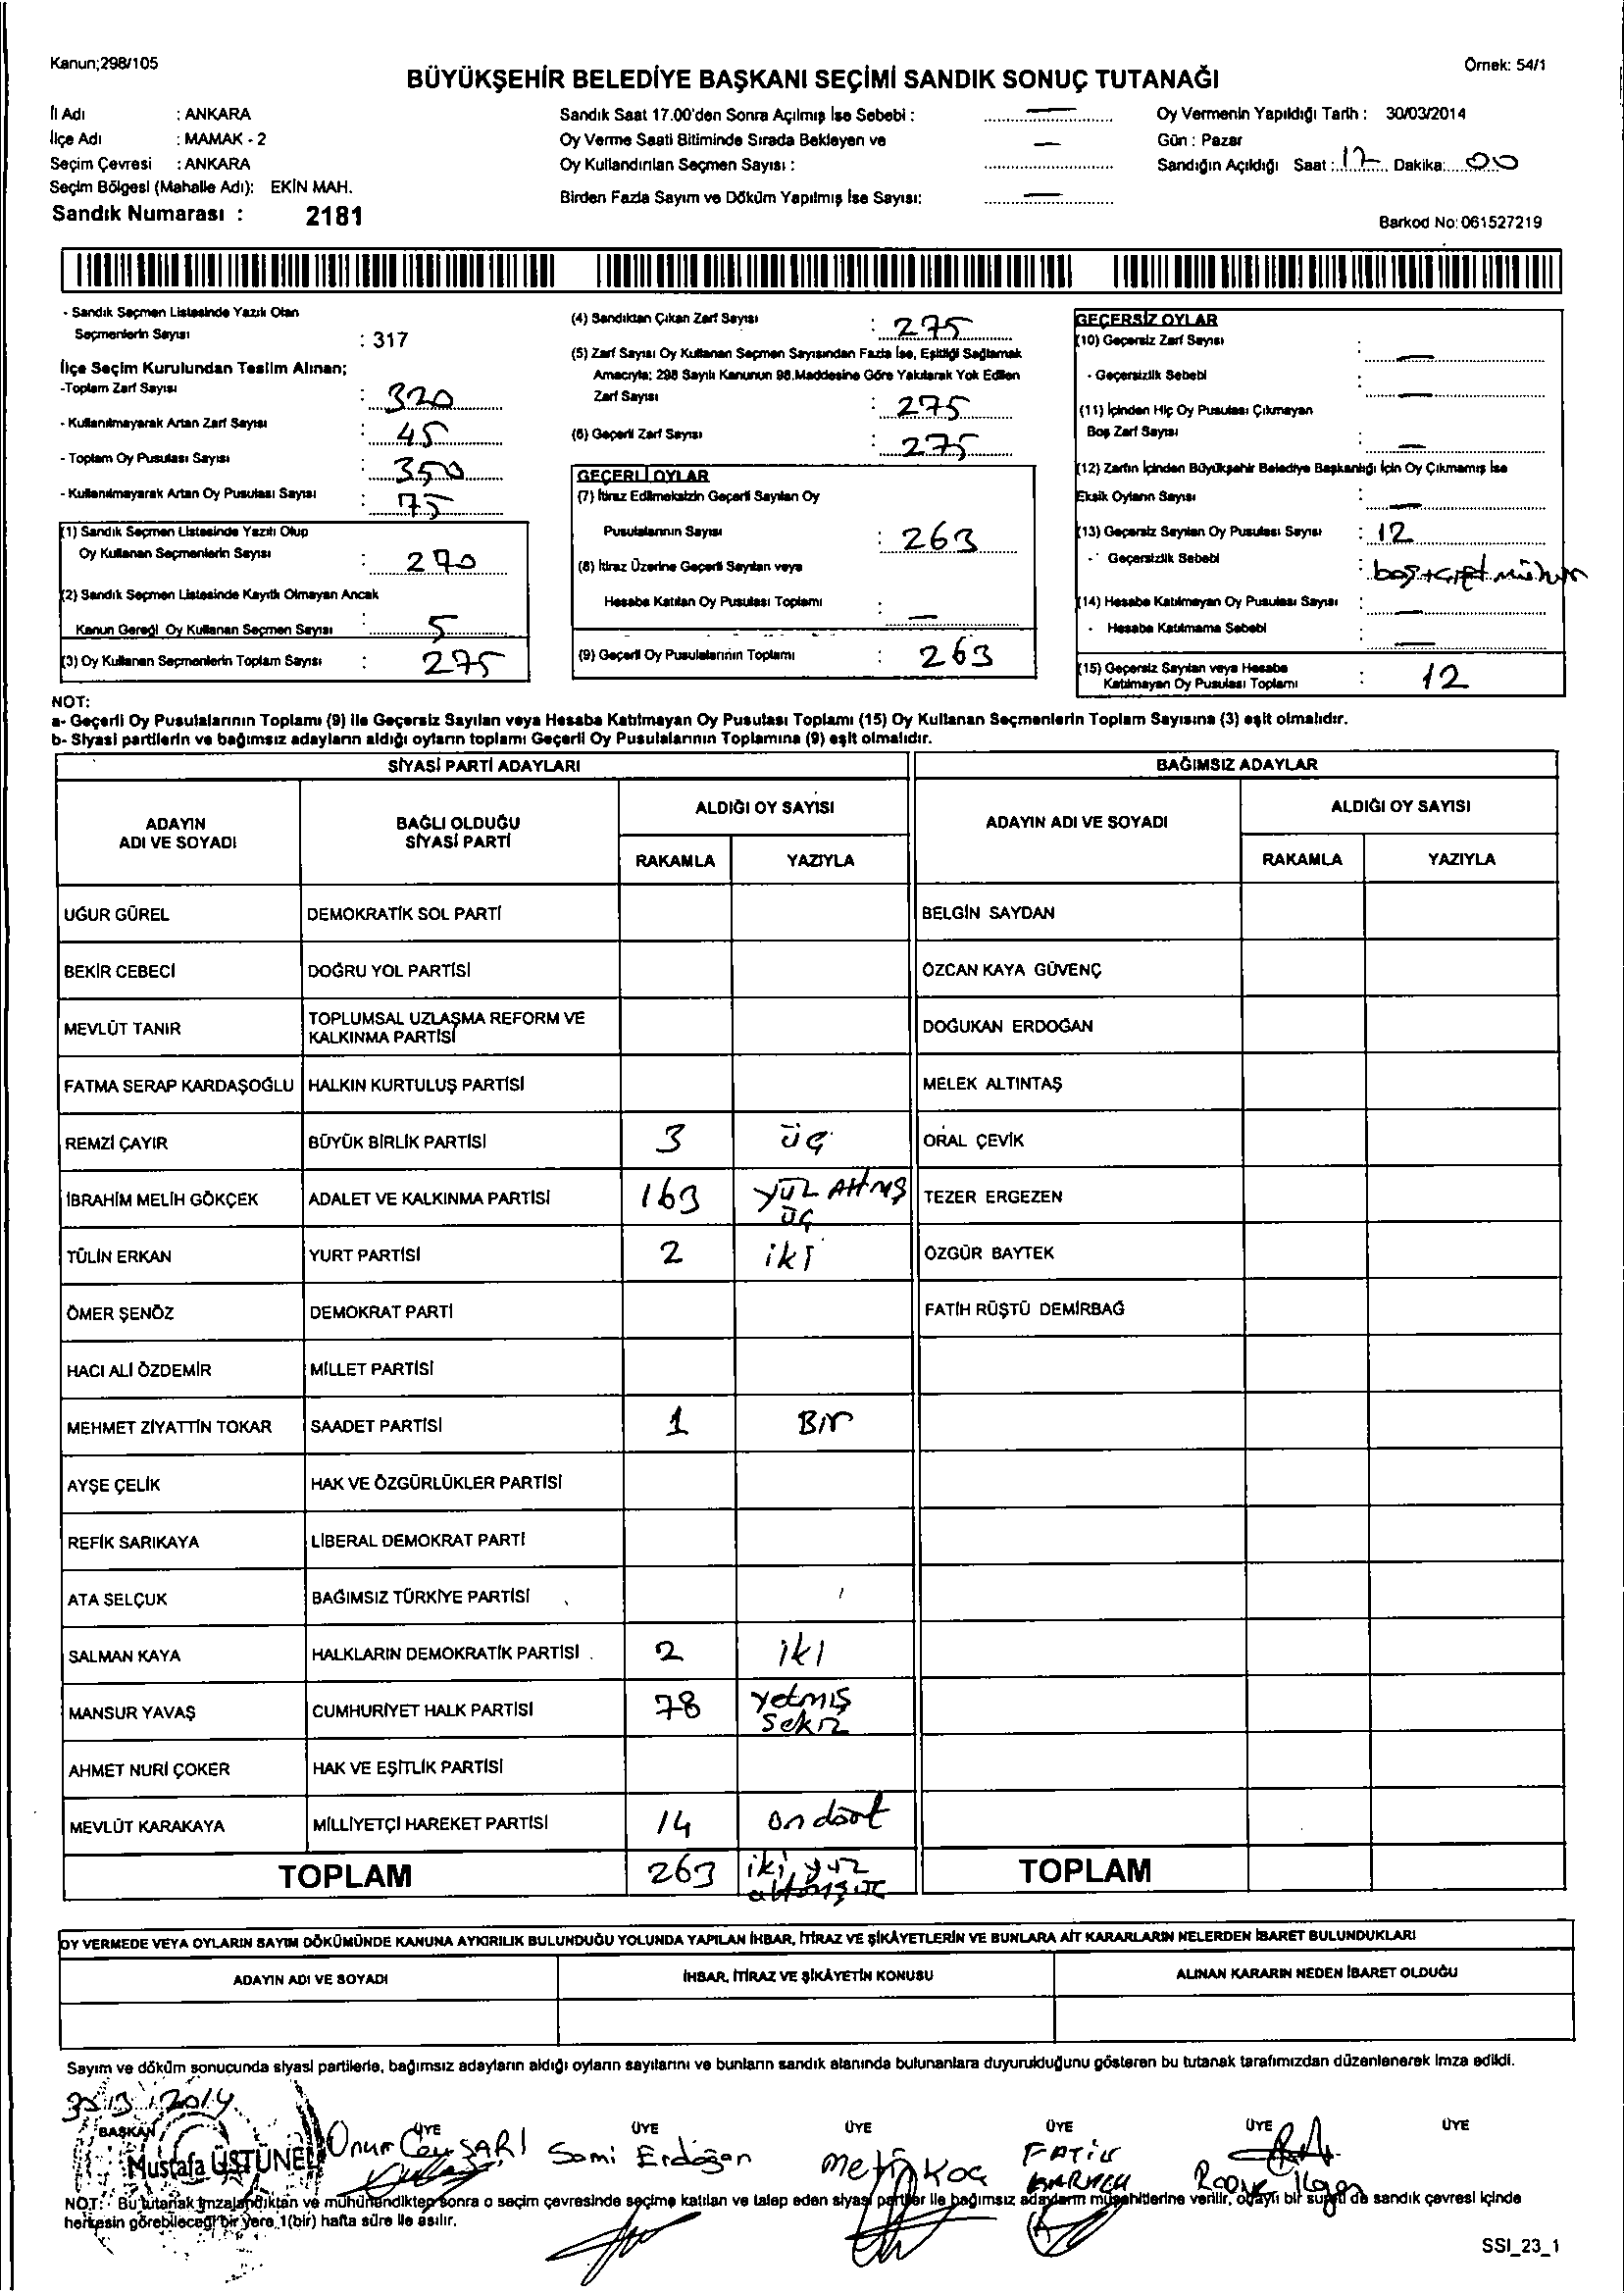 Kanun;298/105
Örnek: 54/1
BÜYÜKŞEHİR BELEDİYE BAŞKANI SEÇİMİ SANDIK SONUÇ TUTANAĞI
İl Adı : ANKARA
İlçe Adı : MAMAK - 2
Seçim Çevresi : ANKARA
Seçim Bölgesi (Mahalle Adı): EKİN MAH.
Sandık Numarası : 2181
Sandık Saat 17.00'den Sonra Açılmış İse Sebebi : —
Oy Verme Saati Bitiminde Sırada Bekleyen ve —
Oy Kullandırılan Seçmen Sayısı :
Birden Fazla Sayım ve Döküm Yapılmış İse Sayısı: —
Oy Vermenin Yapıldığı Tarih : 30/03/2014
Gün : Pazar
Sandığın Açıldığı Saat : 17 Dakika: 00
Barkod No: 061527219
- Sandık Seçmen Listesinde Yazılı Olan
Seçmenlerin Sayısı : 317
İlçe Seçim Kurulundan Teslim Alınan;
-Toplam Zarf Sayısı : 320
- Kullanılmayarak Artan Zarf Sayısı : 45
- Toplam Oy Pusulası Sayısı : 350
- Kullanılmayarak Artan Oy Pusulası Sayısı : 75
(1) Sandık Seçmen Listesinde Yazılı Olup
Oy Kullanan Seçmenlerin Sayısı : 270
(2) Sandık Seçmen Listesinde Kayıtlı Olmayan Ancak
Kanun Gereği Oy Kullanan Seçmen Sayısı : 5
(3) Oy Kullanan Seçmenlerin Toplam Sayısı : 275
(4) Sandıktan Çıkan Zarf Sayısı : 275
(5) Zarf Sayısı Oy Kullanan Seçmen Sayısından Fazla İse, Eşitliği Sağlamak
Amacıyla; 298 Sayılı Kanunun 98.Maddesine Göre Yakılarak Yok Edilen
Zarf Sayısı : 275
(6) Geçerli Zarf Sayısı : 275
GEÇERLİ OYLAR
(7) İtiraz Edilmeksizin Geçerli Sayılan Oy
Pusulalarının Sayısı : 263
(8) İtiraz Üzerine Geçerli Sayılan veya
Hesaba Katılan Oy Pusulası Toplamı : —
(9) Geçerli Oy Pusulalarının Toplamı : 263
GEÇERSİZ OYLAR
(10) Geçersiz Zarf Sayısı : —
- Geçersizlik Sebebi : —
(11) İçinden Hiç Oy Pusulası Çıkmayan
Boş Zarf Sayısı : —
(12) Zarfın İçinden Büyükşehir Belediye Başkanlığı İçin Oy Çıkmamış İse
Eksik Oyların Sayısı : —
(13) Geçersiz Sayılan Oy Pusulası Sayısı : 12
- Geçersizlik Sebebi : boş+çift mühür
(14) Hesaba Katılmayan Oy Pusulası Sayısı : —
- Hesaba Katılmama Sebebi : —
(15) Geçersiz Sayılan veya Hesaba
Katılmayan Oy Pusulası Toplamı : 12
NOT:
a- Geçerli Oy Pusulalarının Toplamı (9) ile Geçersiz Sayılan veya Hesaba Katılmayan Oy Pusulası Toplamı (15) Oy Kullanan Seçmenlerin Toplam Sayısına (3) eşit olmalıdır.
b- Siyasi partilerin ve bağımsız adayların aldığı oyların toplamı Geçerli Oy Pusulalarının Toplamına (9) eşit olmalıdır.
SİYASİ PARTİ ADAYLARI
BAĞIMSIZ ADAYLAR
ADAYIN ADI VE SOYADI
BAĞLI OLDUĞU SİYASİ PARTİ
ALDIĞI OY SAYISI
RAKAMLA YAZIYLA
ADAYIN ADI VE SOYADI
ALDIĞI OY SAYISI
RAKAMLA YAZIYLA
UĞUR GÜREL DEMOKRATİK SOL PARTİ BELGİN SAYDAN
BEKİR CEBECİ DOĞRU YOL PARTİSİ ÖZCAN KAYA GÜVENÇ
MEVLÜT TANIR TOPLUMSAL UZLAŞMA REFORM VE KALKINMA PARTİSİ DOĞUKAN ERDOĞAN
FATMA SERAP KARDAŞOĞLU HALKIN KURTULUŞ PARTİSİ MELEK ALTINTAŞ
REMZİ ÇAYIR BÜYÜK BİRLİK PARTİSİ 3 üç ORAL ÇEVİK
İBRAHİM MELİH GÖKÇEK ADALET VE KALKINMA PARTİSİ 163 YÜZ Altmış üç TEZER ERGEZEN
TÜLİN ERKAN YURT PARTİSİ 2 iki ÖZGÜR BAYTEK
ÖMER ŞENÖZ DEMOKRAT PARTİ FATİH RÜŞTÜ DEMİRBAĞ
HACI ALİ ÖZDEMİR MİLLET PARTİSİ
MEHMET ZİYATTİN TOKAR SAADET PARTİSİ 1 Bir
AYŞE ÇELİK HAK VE ÖZGÜRLÜKLER PARTİSİ
REFİK SARIKAYA LİBERAL DEMOKRAT PARTİ
ATA SELÇUK BAĞIMSIZ TÜRKİYE PARTİSİ
SALMAN KAYA HALKLARIN DEMOKRATİK PARTİSİ 2 iki
MANSUR YAVAŞ CUMHURİYET HALK PARTİSİ 78 yetmiş sekiz
AHMET NURİ ÇOKER HAK VE EŞİTLİK PARTİSİ
MEVLÜT KARAKAYA MİLLİYETÇİ HAREKET PARTİSİ 14 on dört
TOPLAM 263 iki yüz altmış üç TOPLAM
OY VERMEDE VEYA OYLARIN SAYIM DÖKÜMÜNDE KANUNA AYKIRILIK BULUNDUĞU YOLUNDA YAPILAN İHBAR, İTİRAZ VE ŞİKÂYETLERİN VE BUNLARA AİT KARARLARIN NELERDEN İBARET BULUNDUKLARI
ADAYIN ADI VE SOYADI İHBAR, İTİRAZ VE ŞİKÂYETİN KONUSU ALINAN KARARIN NEDEN İBARET OLDUĞU
Sayım ve döküm sonucunda siyasi partilerle, bağımsız adayların aldığı oyların sayılarını ve bunların sandık alanında bulunanlara duyurulduğunu gösteren bu tutanak tarafımızdan düzenlenerek imza edildi.
30/3/2014
BAŞKAN ÜYE ÜYE ÜYE ÜYE ÜYE ÜYE
Mustafa ÜSTÜNEL Onur SARI Sami Erdoğan Metin Koç FATİH
NOT: Bu tutanak imzalandıktan ve mühürlendikten sonra o seçim çevresinde seçime katılan ve talep eden siyasi partiler ile bağımsız adayların müşahitlerine verilir, onaylı bir sureti de sandık çevresi içinde
herkesin görebileceği bir yere 1(bir) hafta süre ile asılır.
SSI_23_1